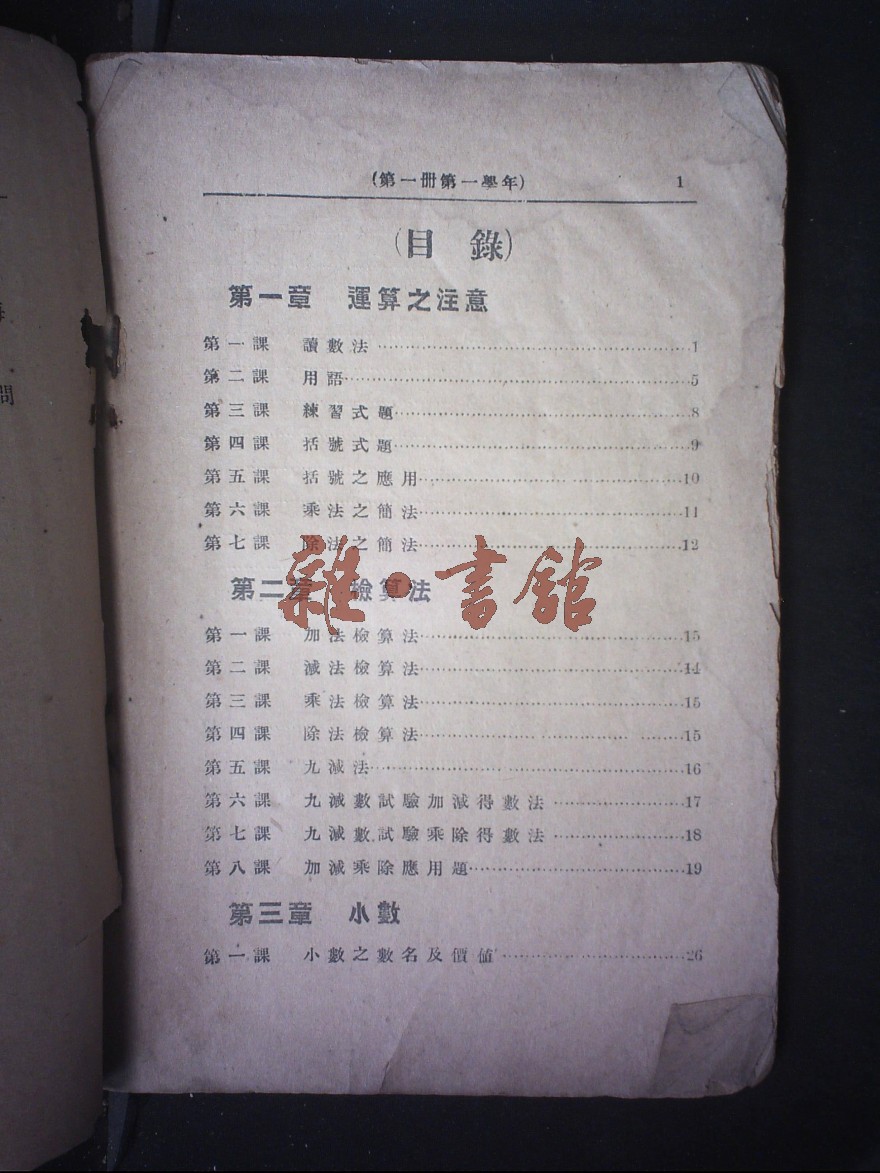 (第一册第一學年) 1
(目 錄)
第一章 運算之注意
第一課 讀數法 1
第二課 用語 5
第三課 練習式題 8
第四課 括號式題 9
第五課 括號之應用 10
第六課 乘法之簡法 11
第七課 除法之簡法 12
雜·書舘
第二章 檢算法
第一課 加法檢算法 15
第二課 減法檢算法 14
第三課 乘法檢算法 15
第四課 除法檢算法 15
第五課 九減法 16
第六課 九減數試驗加減得數法 17
第七課 九減數試驗乘除得數法 18
第八課 加減乘除應用題 19
第三章 小數
第一課 小數之數名及價值 26
問